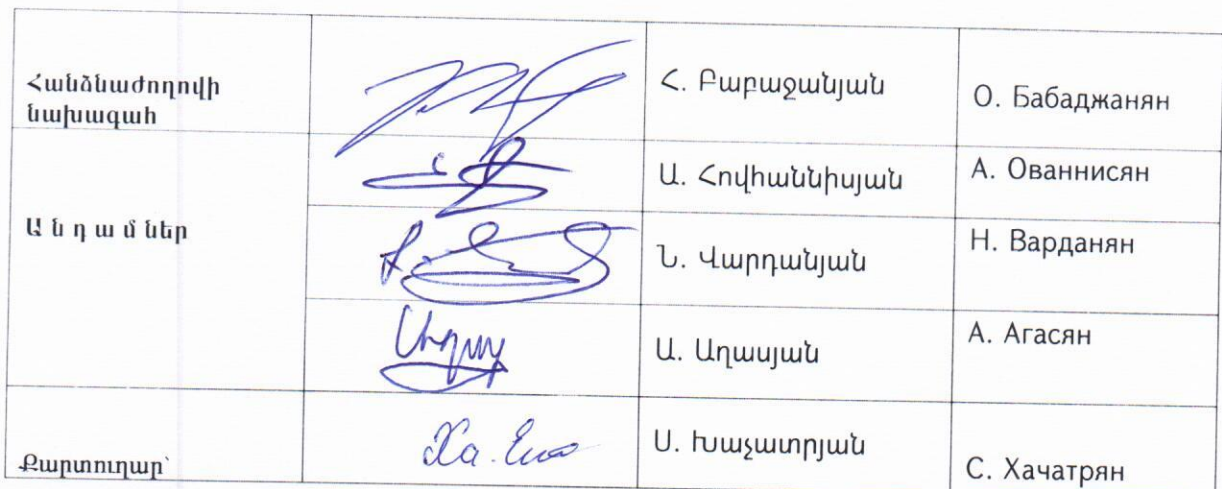 Հանձնաժողովի
նախագահ
Հ. Բաբաջանյան
Օ. Бабаджанян
Ա ն դ ա մ ներ
Ա. Հովհաննիսյան
А. Ованнисян
Ն. Վարդանյան
Н. Варданян
Ա. Աղասյան
А. Агасян
Քարտուղար՝
Ս. Խաչատրյան
С. Хачатрян